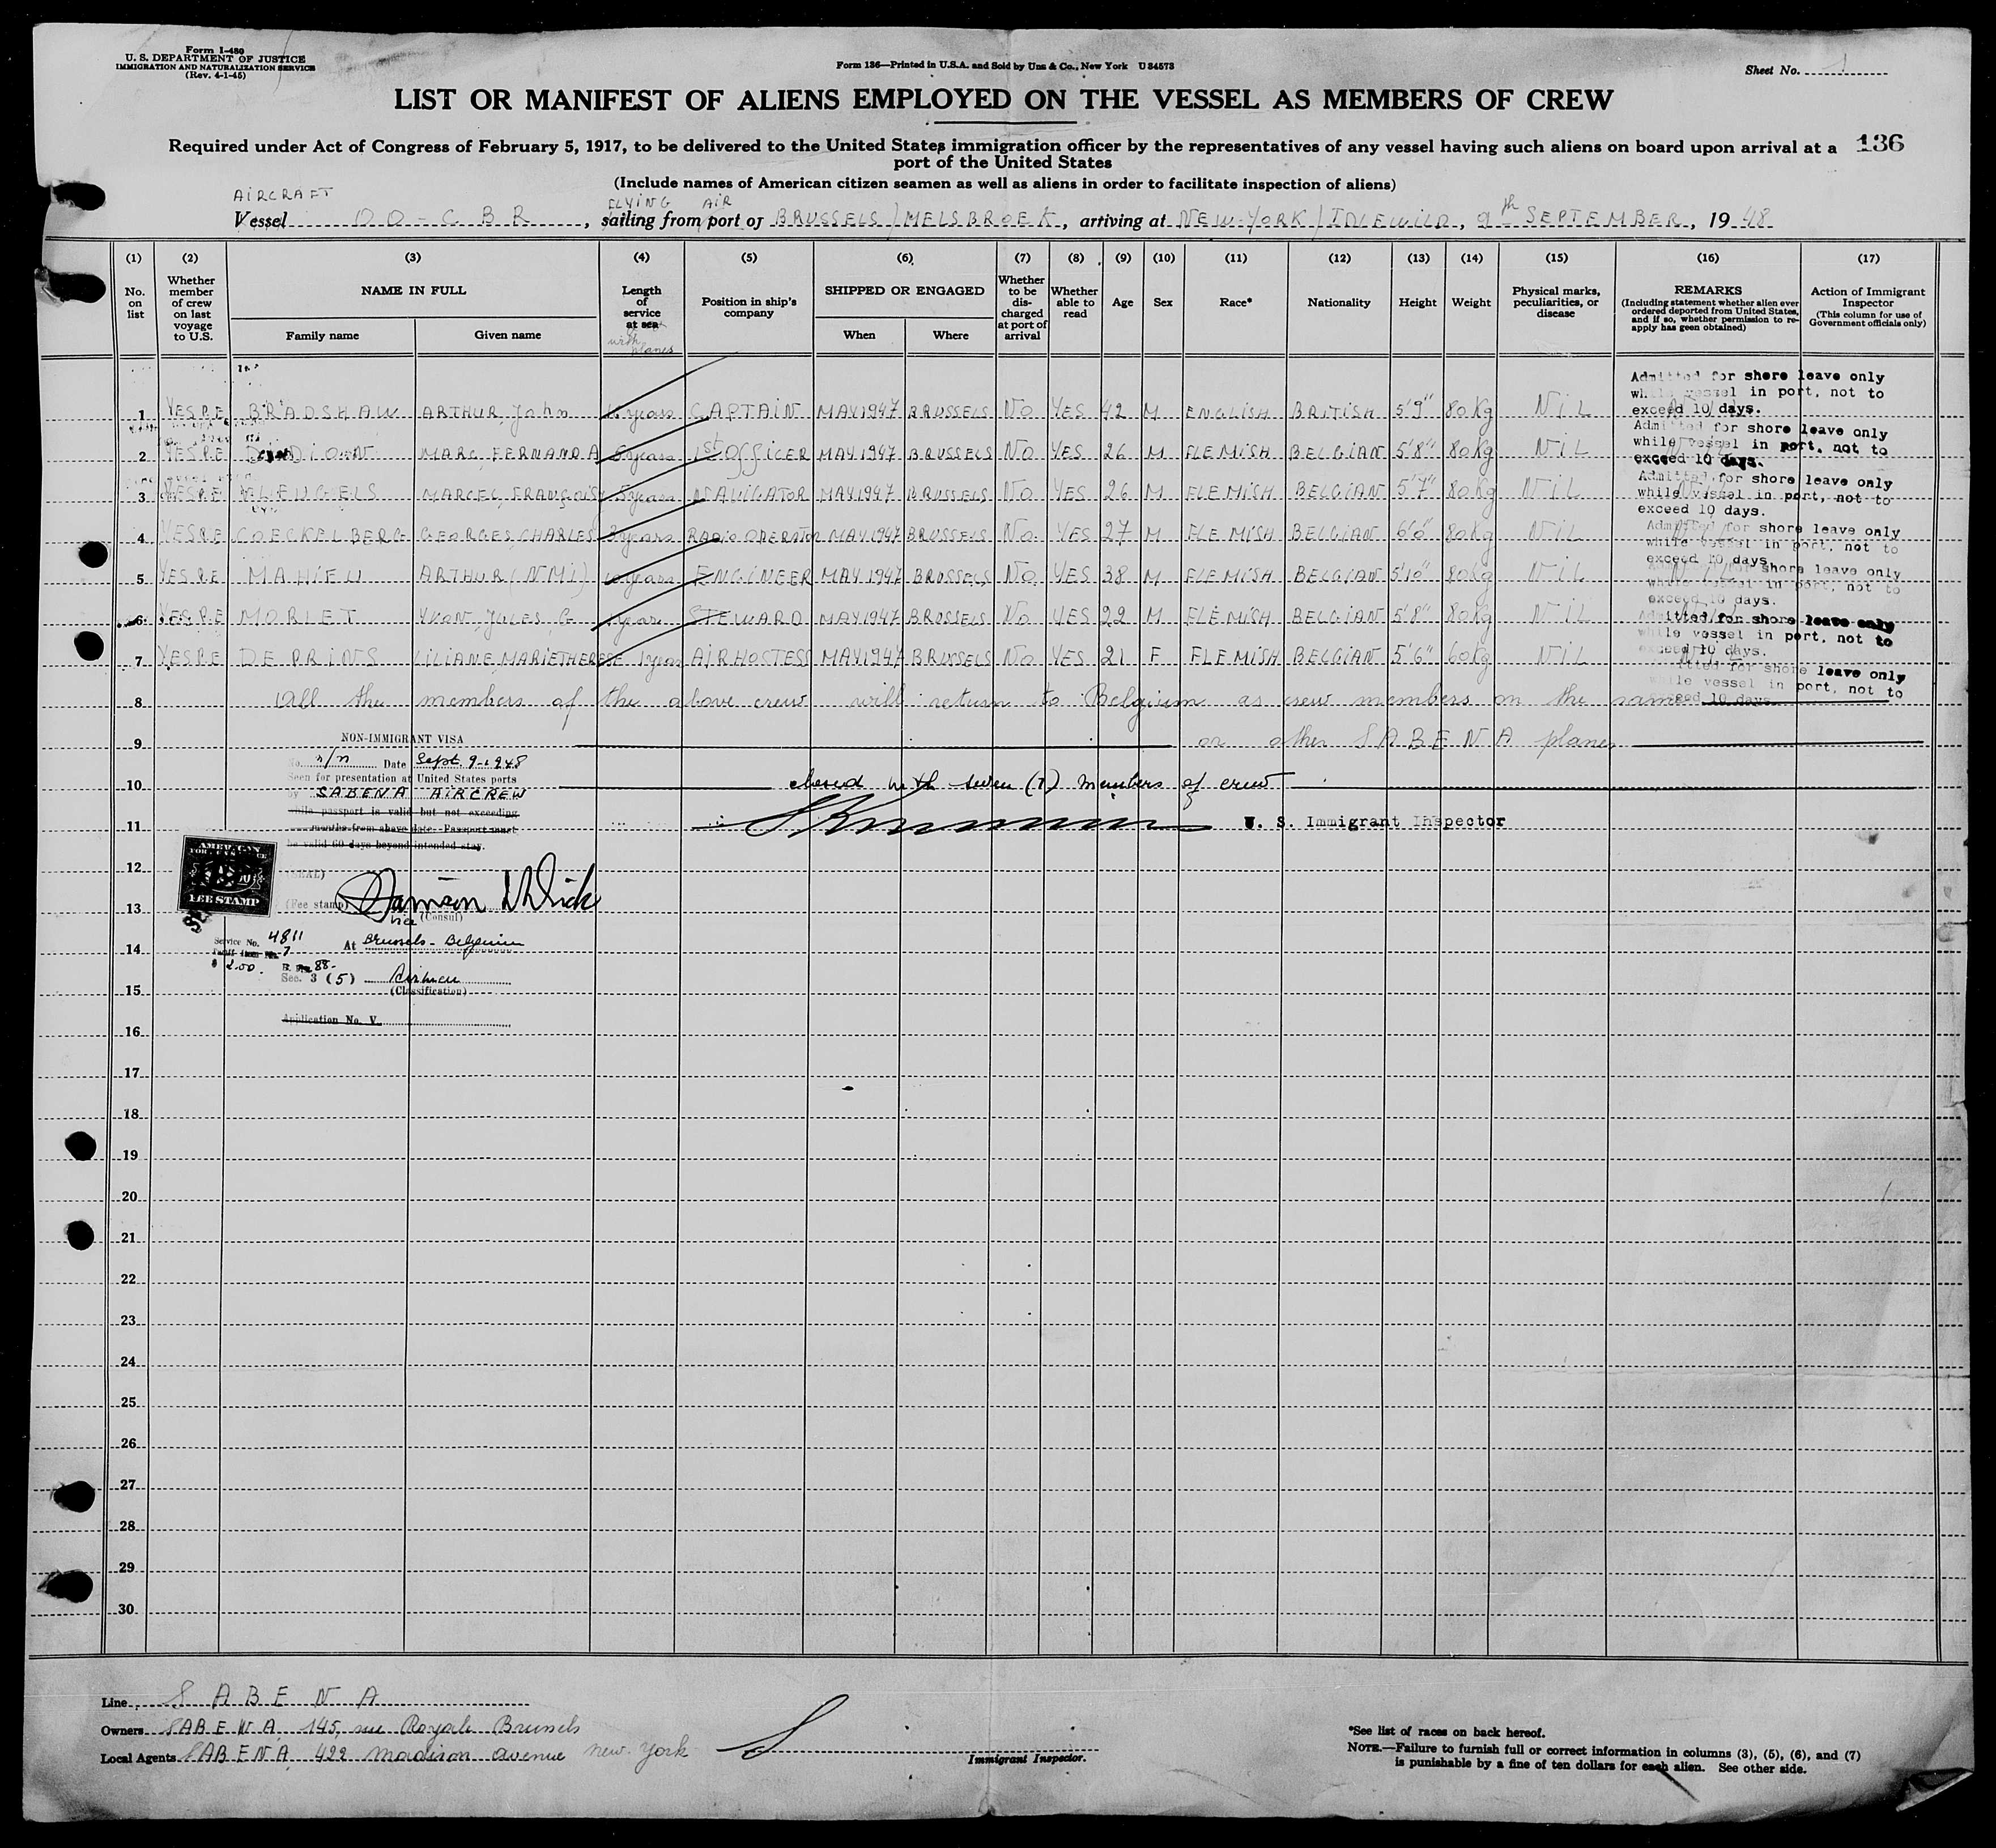 Form I-480
U. S. DEPARTMENT OF JUSTICE
IMMIGRATION AND NATURALIZATION SERVICE
(Rev. 4-1-45)
Form 136—Printed in U.S.A. and Sold by Unz & Co., New York U 34573
Sheet No. 1
LIST OR MANIFEST OF ALIENS EMPLOYED ON THE VESSEL AS MEMBERS OF CREW
136
Required under Act of Congress of February 5, 1917, to be delivered to the United States immigration officer by the representatives of any vessel having such aliens on board upon arrival at a
port of the United States
(Include names of American citizen seamen as well as aliens in order to facilitate inspection of aliens)
AIRCRAFT FLYING AIR
Vessel OO-CBR, sailing from port of BRUSSELS/MELSBROEK, arriving at NEW-YORK/IDLEWILD, 9th SEPTEMBER, 1948
(1) (2) (3) (4) (5) (6) (7) (8) (9) (10) (11) (12) (13) (14) (15) (16) (17)
No. on list
Whether member of crew on last voyage to U.S.
NAME IN FULL
Family name Given name
Length of service at sea
with planes
Position in ship's company
SHIPPED OR ENGAGED
When Where
Whether to be discharged at port of arrival
Whether able to read
Age Sex Race* Nationality Height Weight
Physical marks, peculiarities, or disease
REMARKS
(Including statement whether alien ever ordered deported from United States, and if so, whether permission to reapply has geen obtained)
Action of Immigrant Inspector
(This column for use of Government officials only)
1 YES RE BRADSHAW ARTHUR John years CAPTAIN MAY 1947 BRUSSELS No YES 42 M ENGLISH BRITISH 5'9" 80Kg NiL
Admitted for shore leave only
while vessel in port, not to
exceed 10 days.
2 YES RE DION MARC FERNAND A 6 years 1st OFFICER MAY 1947 BRUSSELS No YES 26 M FLEMISH BELGIAN 5'8" 80Kg NiL
Admitted for shore leave only
while vessel in port, not to
exceed 10 days.
3 YES RE MARCEL FRANÇOIS 5 years NAVIGATOR MAY 1947 BRUSSELS No YES 26 M FLEMISH BELGIAN 5'7" 80Kg NiL
Admitted for shore leave only
while vessel in port, not to
exceed 10 days.
4 YES RE COECKELBERG GEORGES CHARLES 3 years RADIO OPERATOR MAY 1947 BRUSSELS No YES 27 M FLEMISH BELGIAN 6'0" 80Kg NiL
Admitted for shore leave only
while vessel in port, not to
exceed 10 days.
5 YES RE MAHIEU ARTHUR (NMI) years ENGINEER MAY 1947 BRUSSELS No YES 38 M FLEMISH BELGIAN 5'10" 80Kg NiL
for shore leave only
while vessel in port, not to
exceed 10 days.
6 YES RE MORLET YVON JULES G 1 year STEWARD MAY 1947 BRUSSELS No YES 22 M FLEMISH BELGIAN 5'8" 80Kg NiL
Admitted for shore leave only
while vessel in port, not to
exceed 10 days.
7 YES RE DE PRINS LILIANE MARIE THERESE 1 year AIR HOSTESS MAY 1947 BRUSSELS No YES 21 F FLEMISH BELGIAN 5'6" 60Kg NiL
Admitted for shore leave only
while vessel in port, not to
exceed 10 days.
8 All the members of the above crew will return to Belgium as crew members on the same
9 or other SABENA planes
10 closed with seven (7) members of crew
11 U. S. Immigrant Inspector
NON-IMMIGRANT VISA
No. n/n Date Sept. 9-1948
Seen for presentation at United States ports
by SABENA AIRCREW
while passport is valid but not exceeding
months from above date. Passport must
be valid 60 days beyond intended stay.
AMERICAN
FOREIGN SERVICE
FEE STAMP
(SEAL)
(Fee stamp)
Vice (Consul)
Service No. 4811
At Brussels - Belgium
Tariff Item No. 7
$ 2.00. 88.-
Sec. 3 (5) Airmen
(Classification)
Application No. V
12
13
14
15
16
17
18
19
20
21
22
23
24
25
26
27
28
29
30
Line SABENA
Owners SABENA 145, rue Royale Brussels
Local Agents SABENA 422 Madison avenue new-york
Immigrant Inspector.
*See list of races on back hereof.
NOTE.—Failure to furnish full or correct information in columns (3), (5), (6), and (7)
is punishable by a fine of ten dollars for each alien. See other side.